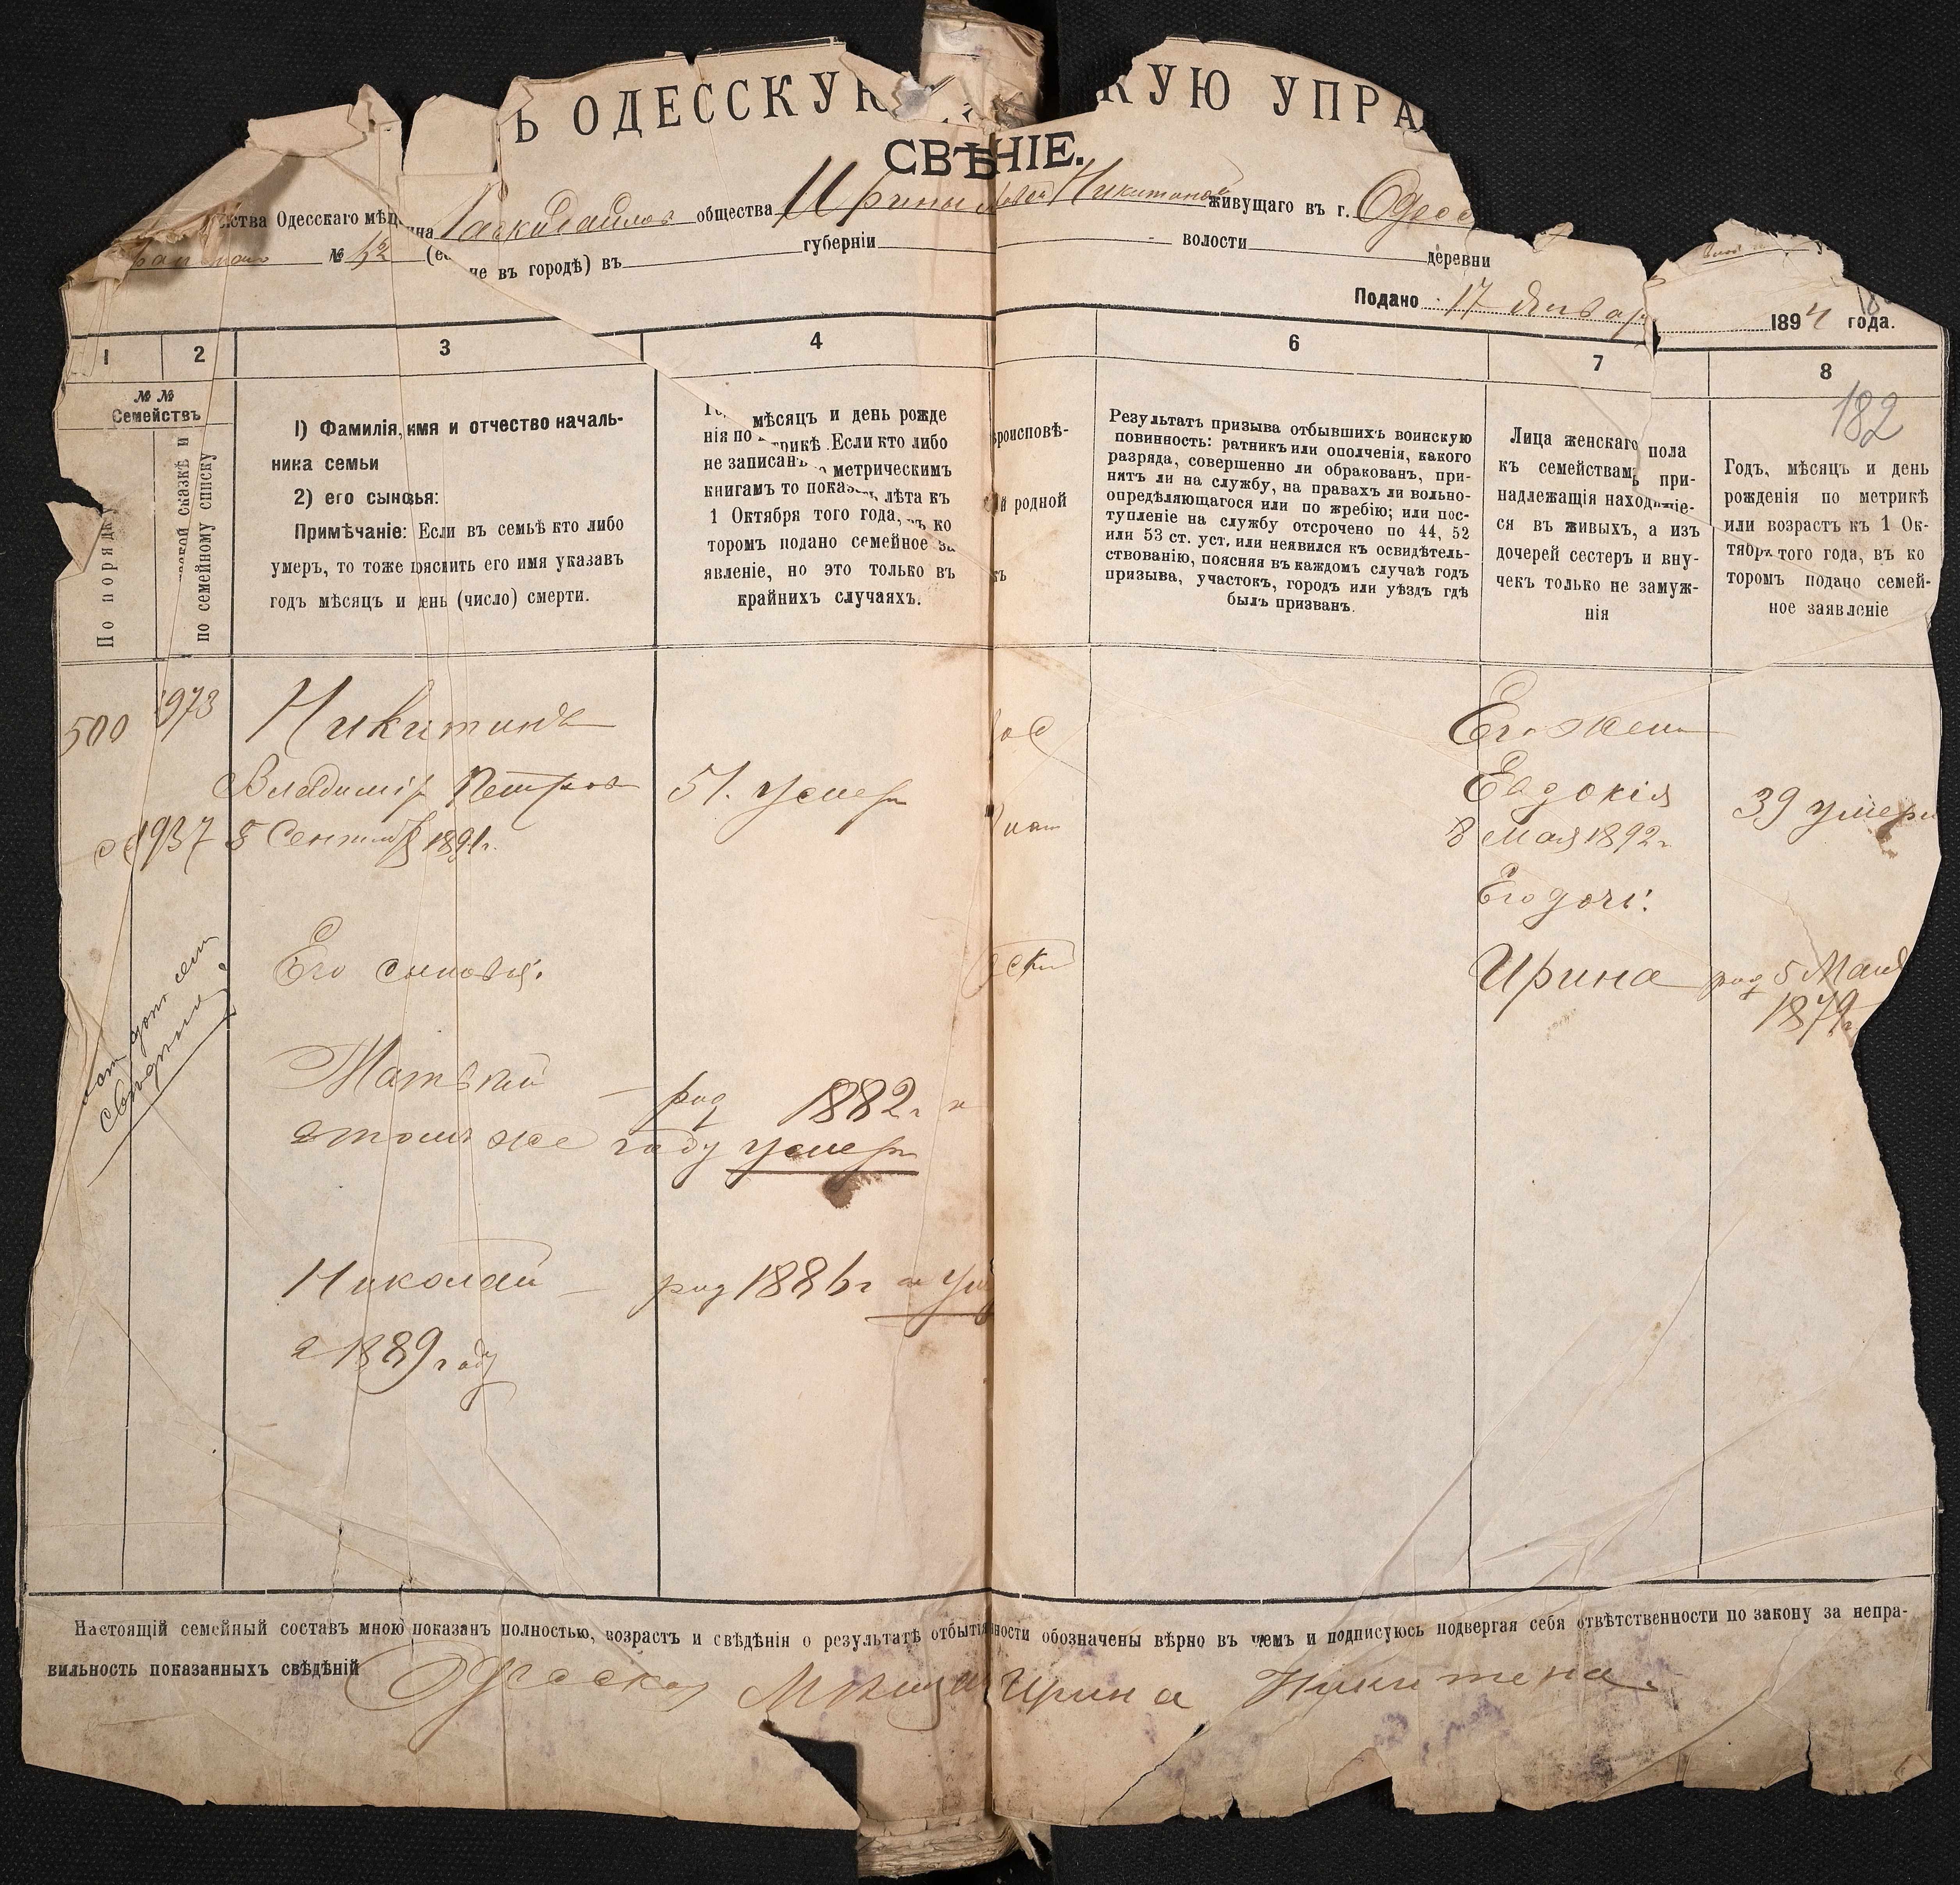 Ъ ОДЕССКУЮ КУЮ УПРА
СВѢ НІЕ.
ства Одесскаго мѣщ ина общества Ирины Никитиной живущаго въ г. Одес
№ (ес не въ городѣ) въ губерніи волости деревни
Подано 17 Январ 1894 года.
1 2 3 4 6 7 8
182
№ № Семействъ
По порядку
ской сказкѣ и
по семейному списку
1) Фамилія, имя и отчество началь-
ника семьи
2) его сыновья:
Примѣчаніе: Если въ семьѣ кто либо
умеръ, то тоже пояснить его имя указавъ
годъ мѣсяцъ и день (число) смерти.
мѣсяцъ и день рожде
нія по трикѣ. Если кто либо
не записанъ метрическимъ
книгамъ то показ лѣта къ
1 Октября того года, въ ко
торомъ подано семейное за
явленіе, но это только въ
крайнихъ случаяхъ.
ѣроисповѣ-
й родной
Результатъ призыва отбывшихъ воинскую
повинность: ратникъ или ополченія, какого
разряда, совершенно ли обракованъ, при-
нятъ ли на службу, на правахъ ли вольно-
опредѣляющагося или по жребію; или пос-
тупленіе на службу отсрочено по 44, 52
или 53 ст. уст. или неявился къ освидѣтель-
ствованію, поясняя въ каждомъ случаѣ годъ
призыва, участокъ, городъ или уѣздъ гдѣ
былъ призванъ.
Лица женскаго пола
къ семействамъ при-
надлежащія находящіе-
ся въ живыхъ, а изъ
дочерей сестеръ и вну-
чекъ только не замуж-
нія
Годъ, мѣсяцъ и день
рожденія по метрикѣ
или возрастъ къ 1 Ок-
тябр. того года, въ ко
торомъ подано семей-
ное заявленіе
500 1973 Никитинъ Его жена
Владиміръ Петровъ 51. умеръ Евдокія 39 умерла
1937 8 Сентября 1891г. 8 Мая 1892г
Его дочь:
Его сыновья: Ирина род 5 Мая
1879г
Матвѣй — род 1882г и
въ томъ же году умеръ
Николай — род 1886г и ум
въ 1889 году
Настоящій семейный составъ мною показанъ полностью, возрастъ и свѣдѣнія о результатѣ отбытія ности обозначены вѣрно въ чемъ и подписуюсь подвергая себя отвѣтственности по закону за непра-
вильность показанныхъ свѣдѣній Одеская Мѣщан Ирина Никитена.